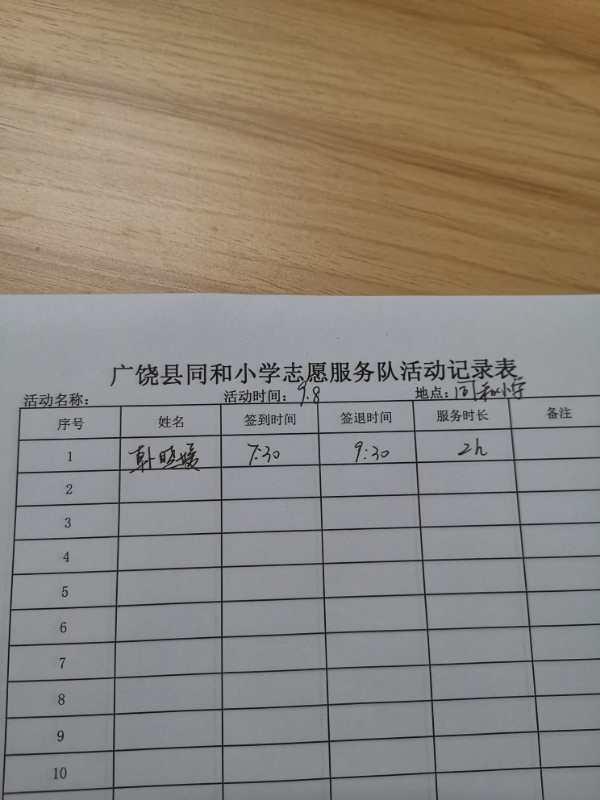 广饶县同和小学志愿服务队活动记录表
活动名称： 活动时间：9.8 地点：同和小学
序号 姓名 签到时间 签退时间 服务时长 备注
1 韩晓媛 7:30 9:30 2h
2
3
4
5
6
7
8
9
10